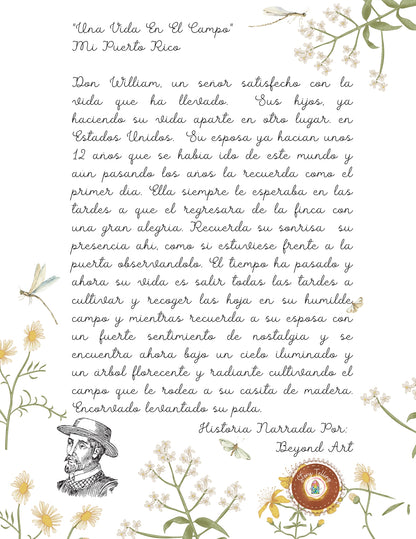 "Una Vida En El Campo"
Mi Puerto Rico
Don William, un señor satisfecho con la
vida que ha llevado. Sus hijos, ya
haciendo su vida aparte en otro lugar, en
Estados Unidos. Su esposa ya hacian unos
12 anos que se habia ido de este mundo y
aun pasando los anos la recuerda como el
primer dia. Ella siempre le esperaba en las
tardes a que el regresara de la finca con
una gran alegria. Recuerda su sonrisa su
presencia ahi, como si estuviese frente a la
puerta observandolo. El tiempo ha pasado y
ahora su vida es salir todas las tardes a
cultivar y recoger las hoja en su humilde
campo y mientras recuerda a su esposa con
un fuerte sentimiento de nostalgia y se
encuentra ahora bajo un cielo iluminado y
un arbol florecente y radiante cultivando el
campo que le rodea a su casita de madera.
Encorvado levantado su pala.
Historia Narrada Por:
Beyond Art